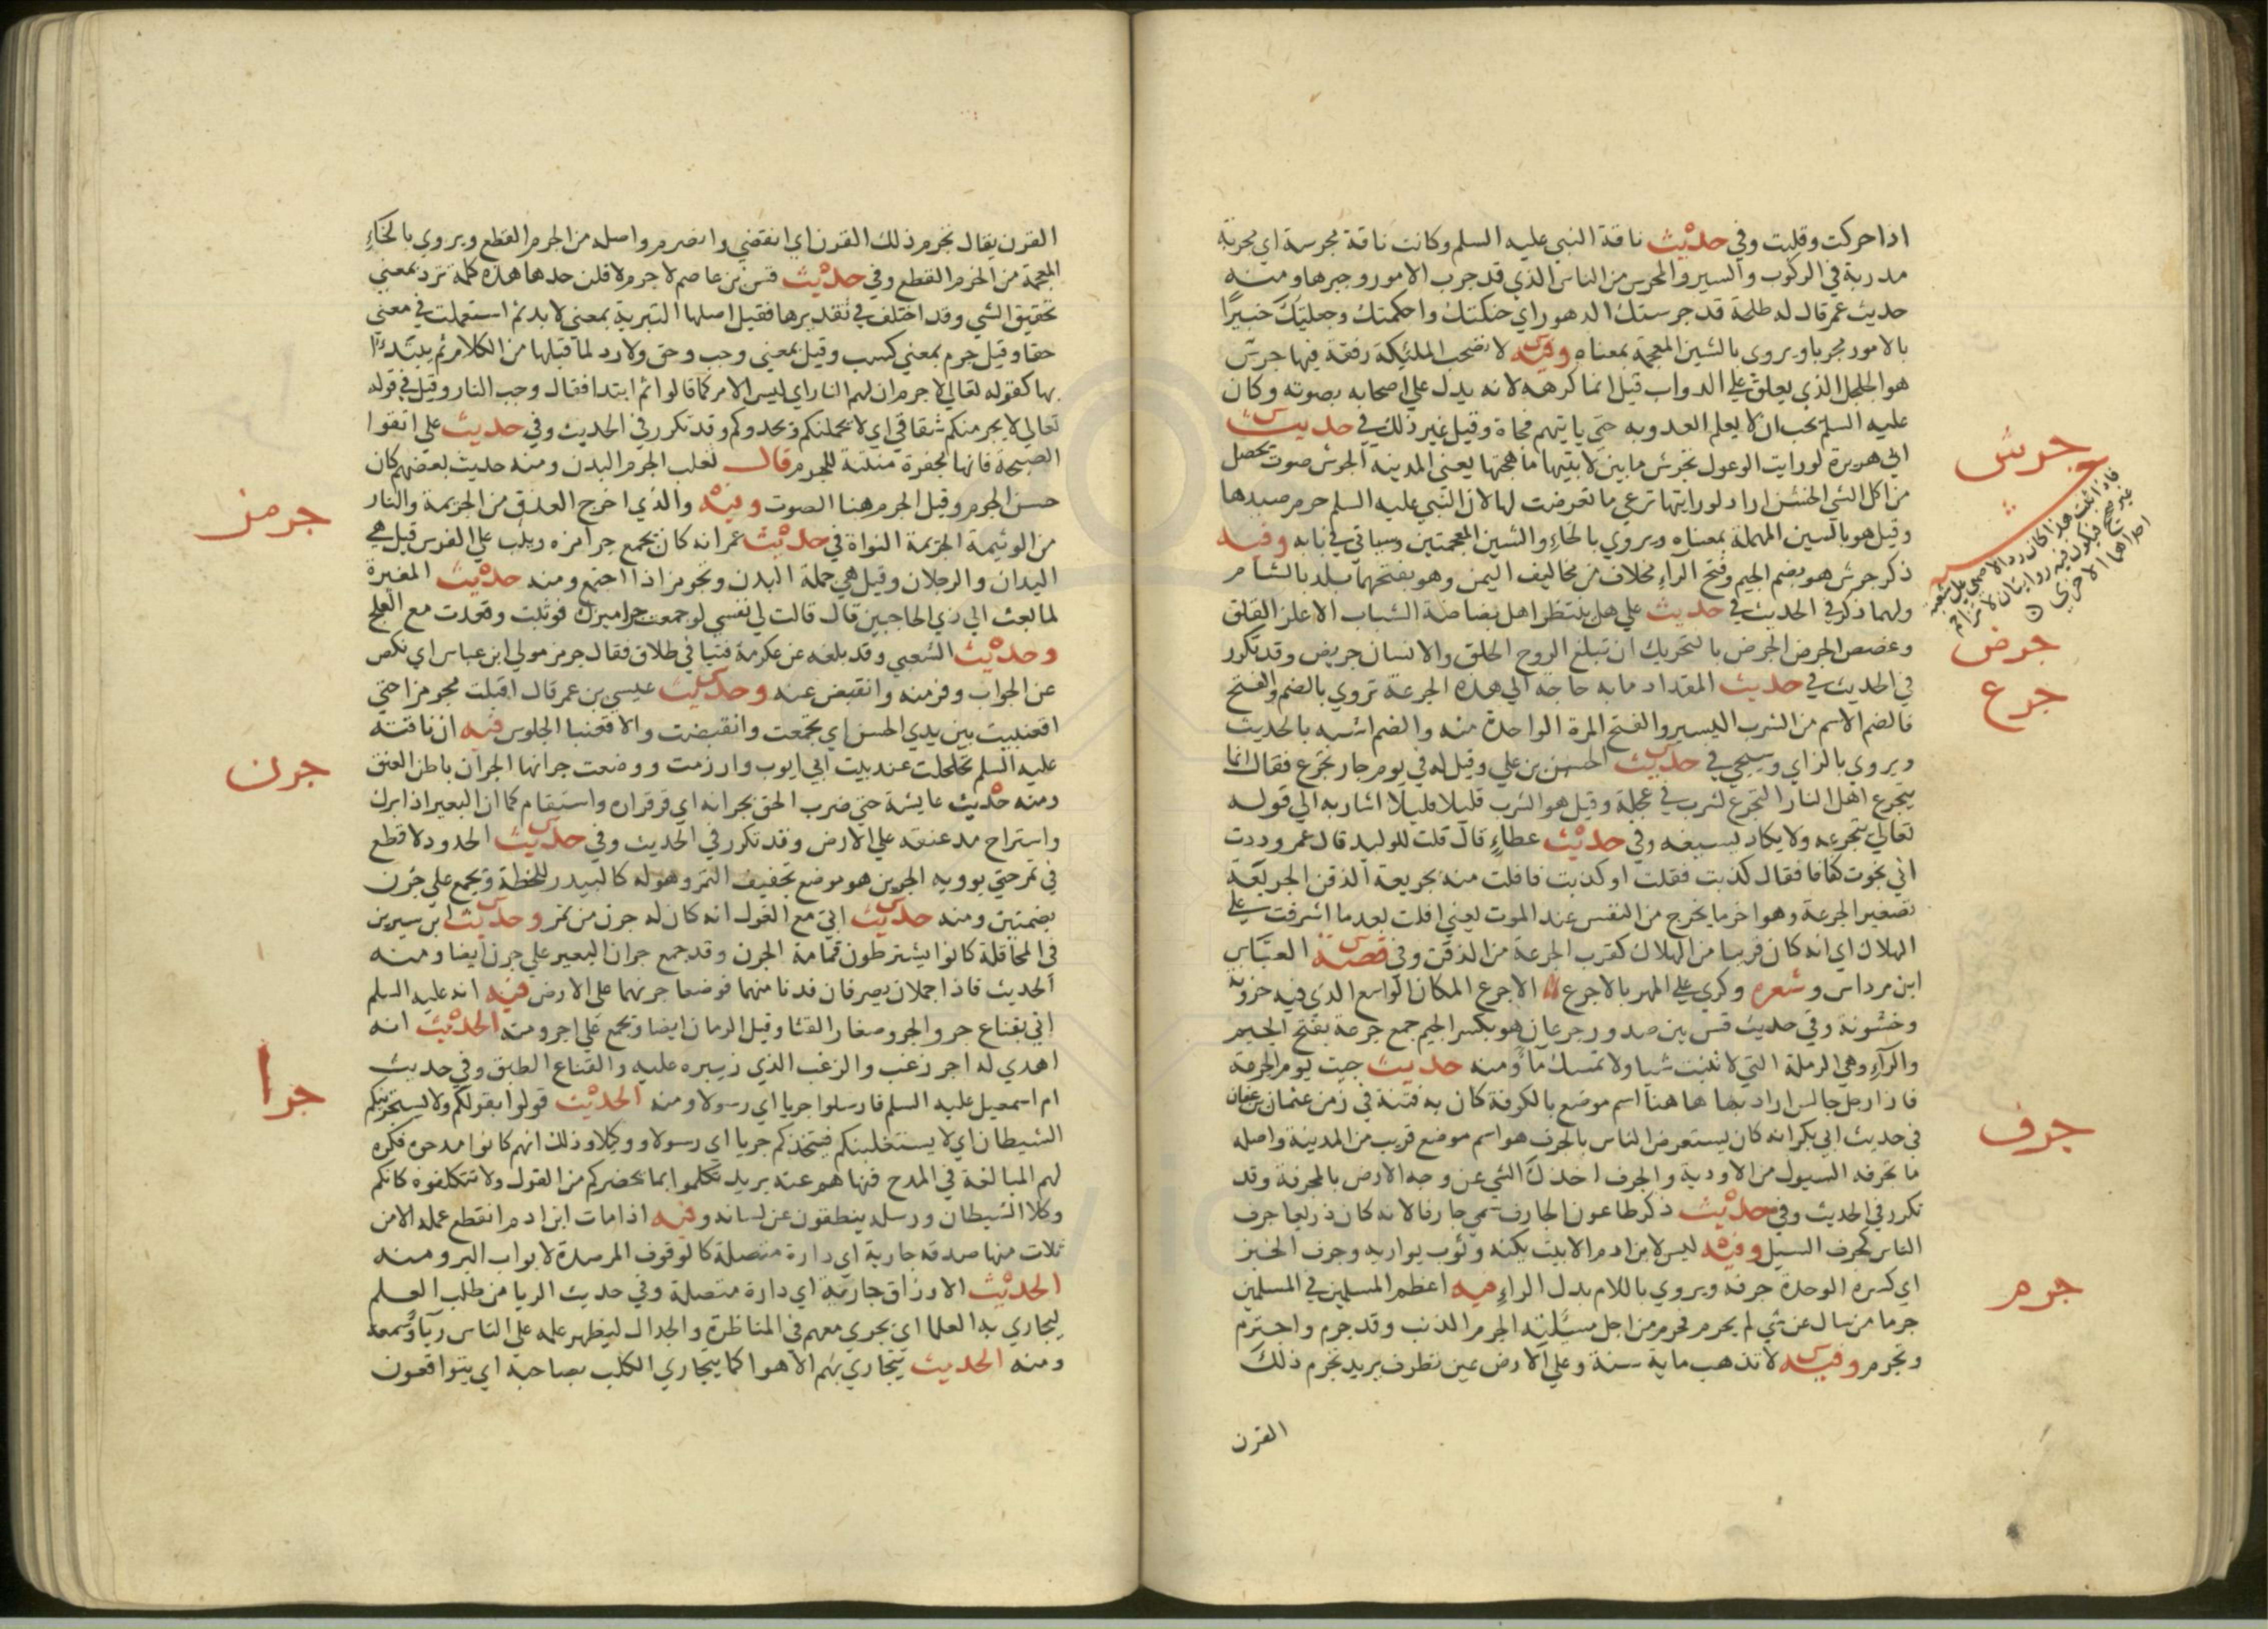 اذا حركت وقلبت وفي حديث ناقة النبي عليه السلم وكانت ناقة مجرسة اي مجربة
مدربة في الركوب والسير والمجرس من الناس الذي قد جرب الامور وخبرها ومنه
حديث عمر قال له طلحة قد جرستك الدهور اي حنكتك واحكمتك وجعلتك خبيرًا
بالامور مجربا ويروي بالشين المعجمة بمعناه وفيه لا تصحب المليكة رفقة فيها جرس
هو الجلجل الذي يعلق علي الدواب قيل انما كرهه لانه يدل علي اصحابه بصوته وكان
عليه السلم يحب ان لا يعلم العدو به حتي ياتيهم فجاة وقيل غير ذلك في حديث
ابي هريرة لو رايت الوعول تجرش ما بين لابتيها ما هجتها يعني المدينة الجرش صوت يحصل
من اكل الشي الخشن اراد لو رايتها ترعي ما تعرضت لها لان النبي عليه السلم حرم صيدها
وقيل هو بالسين المهملة بمعناه ويروي بالخاء والشين المعجمتين وسياتي في بابه وفيه
ذكر جرش هو بضم الجيم وفتح الراء مخلاف من مخاليف اليمن وهو بفتحهما بلد بالشام
ولهما ذكر في الحديث في حديث علي هل ينتظر اهل بضاضة الشباب الا علز القلق
وغصص الجرض الجرض بالتحريك ان تبلغ الروح الحلق والانسان جريض وقد تكرر
في الحديث في حديث المقداد ما به حاجة الي هذه الجرعة تروي بالضم والفتح
فالضم الاسم من الشرب اليسير والفتح المرة الواحدة منه والضم اشبه بالحديث
ويروي بالزاي وسيجي في حديث الحسن بن علي وقيل له في يوم حار تجرع فقال انما
يتجرع اهل النار التجرع لشرب في عجلة وقيل هو الشرب قليلا قليلا اشار به الي قوله
تعالي يتجرعه ولا يكاد يسيغه وفي حديث عطاءٍ قال قلت للوليد قال عمر وددت
اني نجوت كفافا فقال كذبت فقلت او كذبت فافلت منه بجريعة الذقن الجريعة
تصغير الجرعة وهو اخر ما يخرج من النفس عند الموت يعني افلت بعد ما اشرفت علي
الهلاك اي انه كان قريبا من الهلاك كقرب الجرعة من الذقن وفي قصة العباس
ابن مرداس وشعره وكري علي المهر بالاجرع الاجرع المكان الواسع الذي فيه حزونة
وخشونة وفي حديث قس بين صدور جرعان هو بكسر الجيم جمع جرعة بفتح الجيم
والراء وهي الرملة التي لا تنبت شيا ولا تمسك ماء ومنه حديث جيت يوم الجرعة
فاذا رجل جالس اراد بها هاهنا اسم موضع بالكوفة كان به فتنة في زمن عثمان بن عفان
في حديث ابي بكر انه كان يستعرض الناس بالجرف هو اسم موضع قريب من المدينة واصله
ما تجرفه السيول من الاودية والجرف اخذك الشي عن وجه الارض بالمجرفة وقد
تكرر في الحديث وفي حديث ذكر طاعون الجارف سمي جارفا لانه كان ذريعا جرف
الناس كجرف السيل وفيه ليس لابن ادم الا بيت يكنه وثوب يواريه وجرف الخبز
اي كسره الوحدة جرفة ويروي باللام بدل الراء فيه اعظم المسلمين في المسلمين
جرما من سال عن شي لم يحرم فحرم من اجل مسئلته الجرم الذنب وقد جرم واجترم
وتجرم وفيه لا تذهب ماية سنة وعلي الارض عين تطرف يريد تجرم ذلك
القرن
جرش
فاذا ثبت هذا كان رد الاصمعي علي شعبة
غير صحيح فيكون فيه روايتان لا تزاحم
احداهما الاخري
جرض
جرع
جرف
جرم
القرن يقال تجرم ذلك القرن اي انقضي وانصرم واصله من الجرم القطع ويروي بالخاءِ
المعجمة من الخرم القطع وفي حديث قيس بن عاصم لا جرم لافلن حدها هذه كلمة ترد بمعني
تحقيق الشي وقد اختلف في تقديرها فقيل اصلها التبرية بمعني لا بد ثم استعملت في معني
حقا وقيل جرم بمعني كسب وقيل بمعني وجب وحق ولا رد لما قبلها من الكلام ثم يبتدءا
بها كقوله تعالي لا جرم ان لهم النار اي ليس الامر كما قالوا ثم ابتدا فقال وجب النار وقيل في قوله
تعالي لا يجرمنكم شقاقي اي لا يحملنكم ويحدوكم وقد تكرر في الحديث وفي حديث علي اتقوا
الصبحة فانها مجفرة منتنة للجرم قال ثعلب الجرم البدن ومنه حديث بعضهم كان
حسن الجرم وقيل الجرم هنا الصوت وفيه والذي اخرج العذق من الجريمة والنار
من الوثيمة الجريمة النواة في حديث عمر انه كان يجمع جراميزه ويثب علي الفرس قيل هي
اليدان والرجلان وقيل هي جملة البدن وتجرمز اذا اجتمع ومنه حديث المغيرة
لما بعث الي ذي الحاجبين قال قالت لي نفسي لو جمعت جراميزك فوثبت وقعدت مع العلج
وحديث الشعبي وقد بلغه عن عكرمة فتيا في طلاق فقال جرمز مولي ابن عباس اي نكص
عن الجواب وفر منه وانقبض عنه وحديث عيسي بن عمر قال اقبلت مجرمزا حتي
اقعنبيت بين يدي الحسن اي تجمعت وانقبضت والاقعنبا الجلوس فيه ان ناقته
عليه السلم تلحلحت عند بيت ابي ايوب وارزمت ووضعت جرانها الجران باطن العنق
ومنه حديث عايشة حتي ضرب الحق بجرانه اي قر قراره واستقام كما ان البعير اذا برك
واستراح مد عنقه علي الارض وقد تكرر في الحديث وفي حديث الحدود لا قطع
في تمر حتي يوويه الجرين هو موضع تجفيف التمر وهو له كالبيدر للحنطة ويجمع علي جُرن
بضمتين ومنه حديث ابي مع الغول انه كان له جرن من تمر وحديث ابن سيرين
في المحاقلة كانوا يشترطون قمامة الجرن وقد جمع جران البعير علي جرن ايضا ومنه
الحديث فاذا جملان يصرفان فدنا منهما فوضعا جرنهما علي الارض فيه انه عليه السلم
اتي بقناع جرو الجرو صغار القثا وقيل الرمان ايضا ويجمع علي اجر ومنه الحديث انه
اهدي له اجر زغب والزغب الذي زيبره عليه والقناع الطبق وفي حديث
ام اسمعيل عليه السلم فارسلوا جريا اي رسولا ومنه الحديث قولوا بقولكم ولا يستجرينكم
الشيطان اي لا يستغلبنكم فيتخذكم جريا اي رسولا ووكيلا وذلك انهم كانوا مدحوه فكره
لهم المبالغة في المدح فنهاهم عنه يريد تكلموا بما يحضركم من القول ولا تتكلفوه كانكم
وكلا الشيطان ورسله ينطقون عن لسانه وفيه اذا مات ابن ادم انقطع عمله الا من
ثلاث منها صدقه جارية اي دارة متصلة كالوقوف المرصدة لابواب البر ومنه
الحديث الارزاق جارية اي دارة متصلة وفي حديث الريا من طلب العلم
ليجاري به العلما اي يجري معهم في المناظرة والجدال ليظهر علمه علي الناس رياءً وسمعة
ومنه الحديث تتجاري بهم الاهوا كما يتجاري الكلب بصاحبه اي يتواقعون
جرمز
جرن
جرا